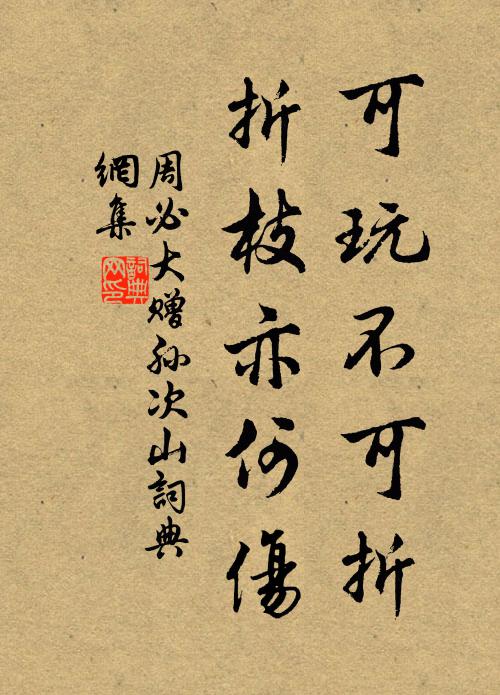 可玩不可折
折枝亦何傷
周必大贈孫次山詞典
網集
詞典
网印